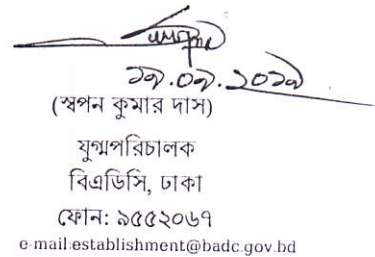 (স্বপন কুমার দাস)
যুগ্মপরিচালক
বিএডিসি, ঢাকা
ফোন: ৯৫৫২০৬৭
e-mail:establishment@badc.gov.bd